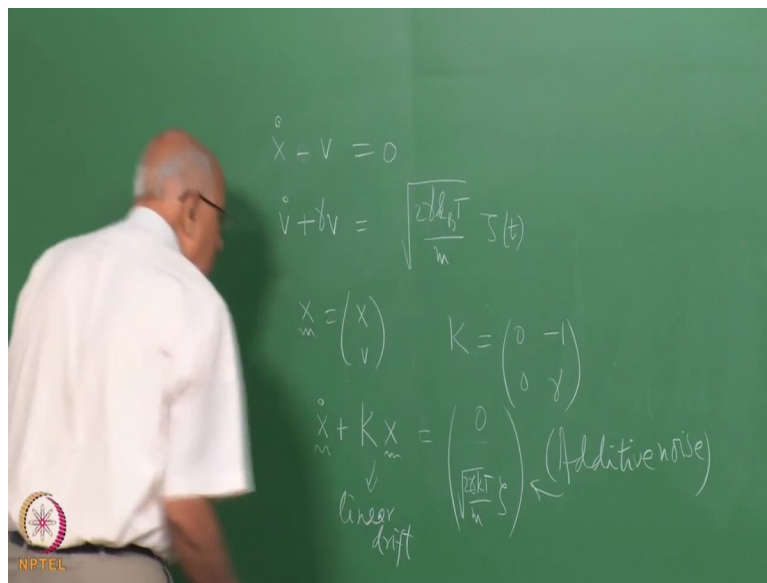 ẋ - v = 0
v̇ + γv = √(2γk_BT/m) ζ(t)
x = (x v)
K = (0 -1 0 γ)
ẋ + K x = (0 √(2γkT/m) ζ) (Additive noise)
linear
drift
NPTEL